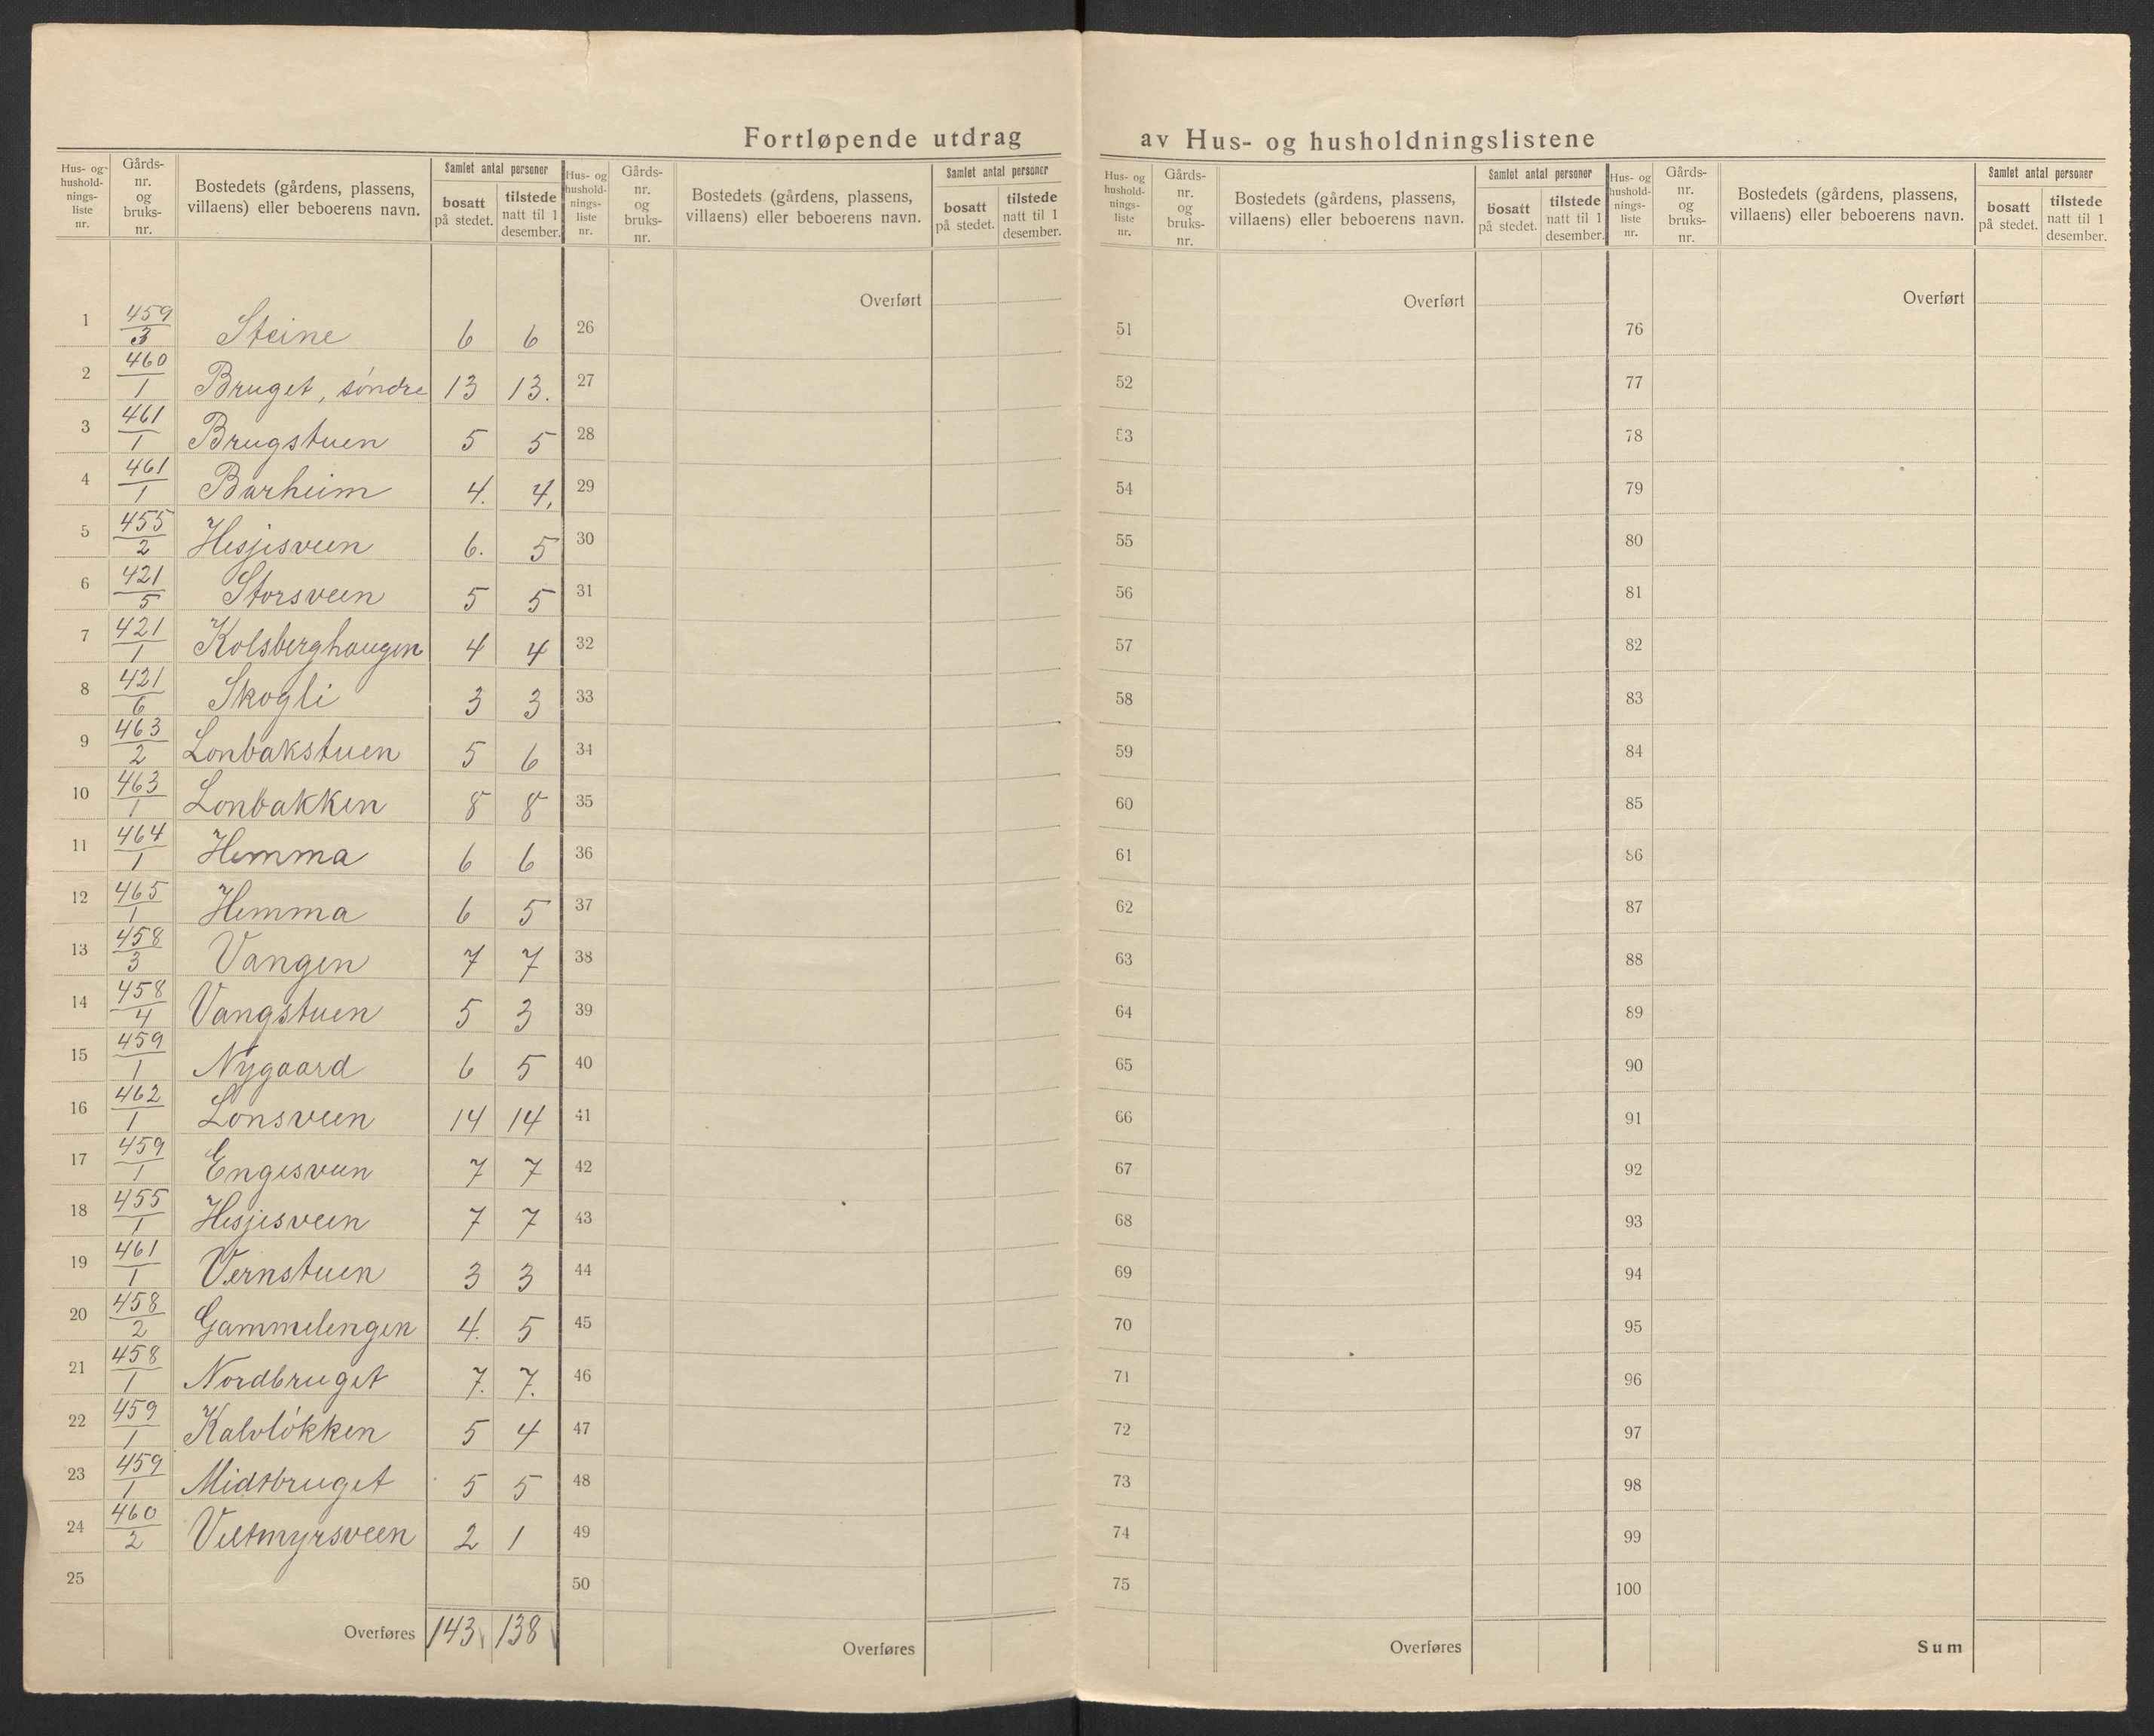 Fortløpende utdrag av Hus- og husholdningslistene
Hus- og hushold-nings-liste nr. | Gårds-nr. og bruks-nr. | Bostedets (gårdens, plassens, villaens) eller beboerens navn. | Samlet antal personer | bosatt på stedet. | tilstede natt til 1 desember.
1 459/3 Steine 6 6
2 460/1 Bruget, søndre 13 13.
3 461/1 Brugstuen 5 5
4 461/1 Barheim 4. 4.
5 455/2 Hesjesveen 6. 5
6 421/5 Storsveen 5 5
7 421/1 Kolsberghaugen 4 4
8 421/6 Skogli 3 3
9 463/2 Lonbakstuen 5 6
10 463/1 Lonbakken 8 8
11 464/1 Hemma 6 6
12 465/1 Hemma 6 5
13 458/3 Vangen 7 7
14 458/4 Vangstuen 5 3
15 459/1 Nygaard 6 5
16 462/1 Lonsveen 14 14
17 459/1 Engesveen 7 7
18 455/1 Hesjesveen 7 7
19 461/1 Vernstuen 3 3
20 458/2 Gammelengen 4. 5
21 458/1 Nordbruget 7. 7.
22 459/1 Kalvløkken 5 4
23 459/1 Midtbruget 5 5
24 460/2 Veltmyrsveen 2 1
25
Overføres 143 138
Hus- og hushold-nings-liste nr. | Gårds-nr. og bruks-nr. | Bostedets (gårdens, plassens, villaens) eller beboerens navn. | Samlet antal personer | bosatt på stedet. | tilstede natt til 1 desember.
Overført
26
27
28
29
30
31
32
33
34
35
36
37
38
39
40
41
42
43
44
45
46
47
48
49
50
Overføres
Hus- og hushold-nings-liste nr. | Gårds-nr. og bruks-nr. | Bostedets (gårdens, plassens, villaens) eller beboerens navn. | Samlet antal personer | bosatt på stedet. | tilstede natt til 1 desember.
Overført
51
52
53
54
55
56
57
58
59
60
61
62
63
64
65
66
67
68
69
70
71
72
73
74
75
Overføres
Hus- og hushold-nings-liste nr. | Gårds-nr. og bruks-nr. | Bostedets (gårdens, plassens, villaens) eller beboerens navn. | Samlet antal personer | bosatt på stedet. | tilstede natt til 1 desember.
Overført
76
77
78
79
80
81
82
83
84
85
86
87
88
89
90
91
92
93
94
95
96
97
98
99
100
Sum